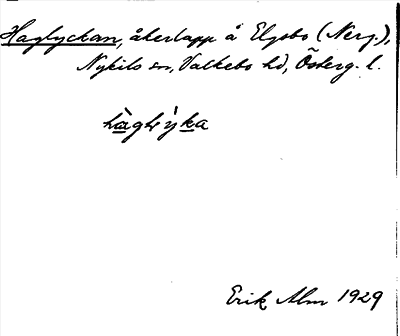 Haglyckan, åkerlapp å Elgsbo (Nerg.),
Nykils sn, Valkebo hd, Österg. l.
Erik Alm 1929